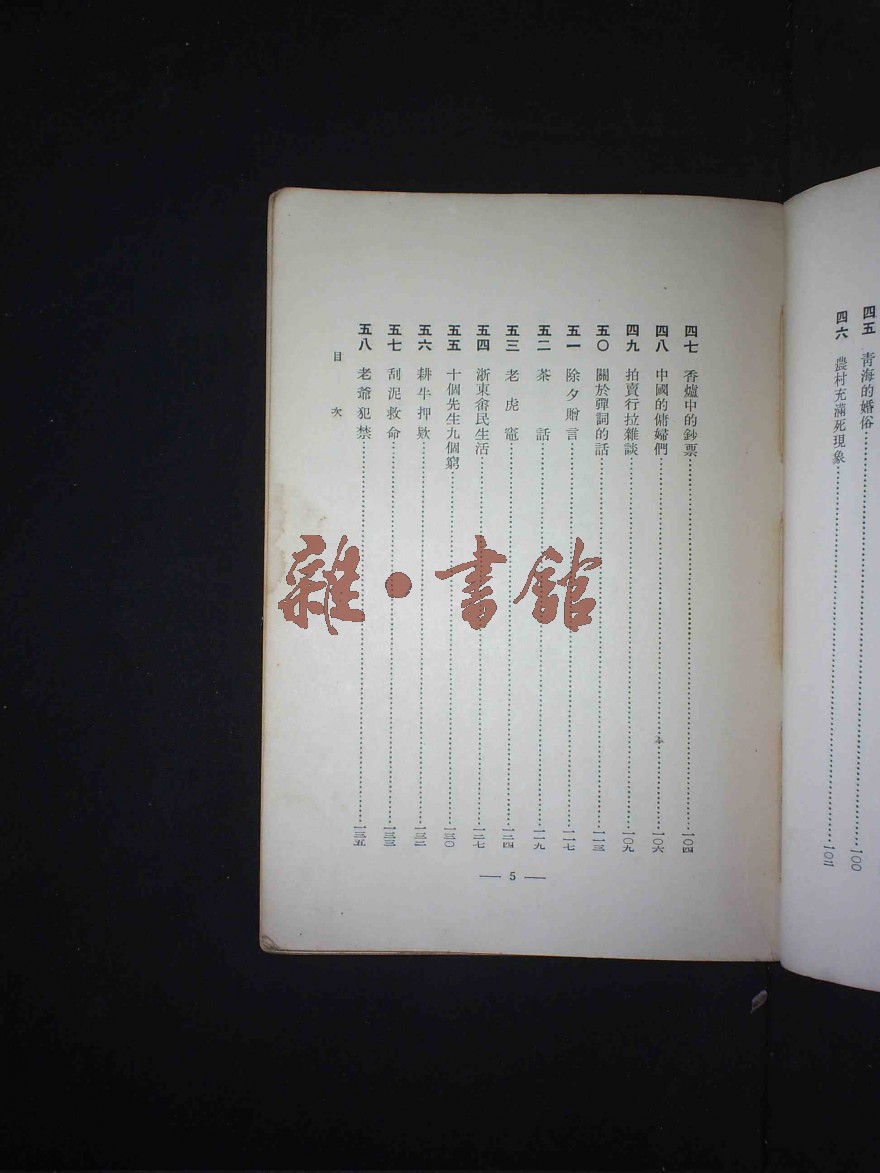 四五 青海的婚俗……100
四六 農村充滿死現象……一〇二
四七 香爐中的鈔票……一〇四
四八 中國的傭婦們……一〇六
四九 拍賣行拉雜談……一〇九
五〇 關於彈詞的話……一一三
五一 除夕贈言……一一七
五二 茶話……一一九
五三 老虎竈……一二四
五四 浙東畬民生活……一二七
五五 十個先生九個窮……一三〇
五六 耕牛押欵……一三二
五七 刮泥救命……一三三
五八 老爺犯禁……一三五
目次
— 5 —
雜·書館